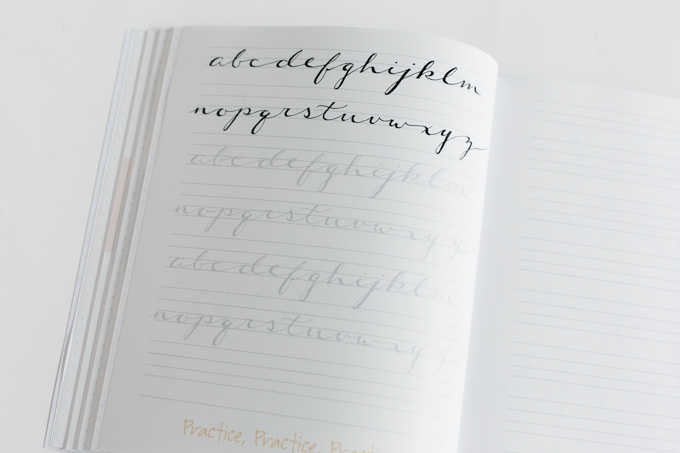 abcdefghijklm
nopqrstuvwxyz
abcdefghijklm
nopqrstuvwxyz
abcdefghijklm
nopqrstuvwxyz
Practice, Practice, Practi